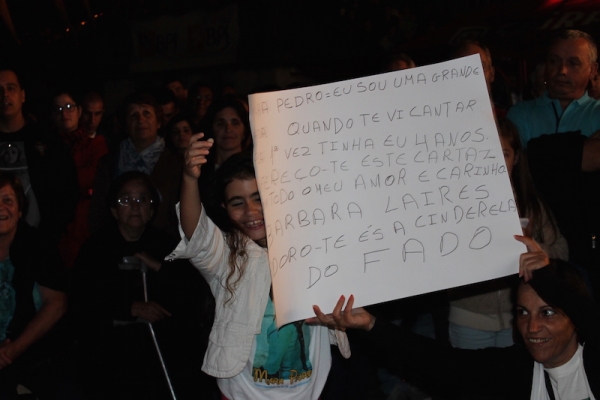 PEDRO=EU SOU UMA GRANDE
QUANDO TE VI CANTAR
1ª VEZ TINHA EU 4 ANOS.
ESTE CARTAZ
TODO O MEU AMOR E CARINHO
BARBARA LAIRES
ADORO-TE ÉS A CINDERELA
DO FADO